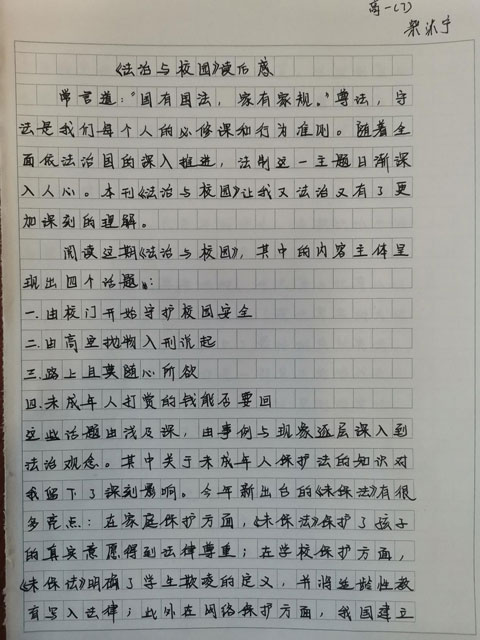 高一(7)
梁沐宁
《法治与校园》读后感
常言道：“国有国法，家有家规。”尊法，守
法是我们每个人的必修课和行为准则。随着全
面依法治国的深入推进，法制这一主题日渐深
入人心。本刊《法治与校园》让我又法治又有了更
加深刻的理解。
阅读这期《法治与校园》，其中的内容主体呈
现出四个话题：
一.由校门开始守护校园安全
二.由高空抛物入刑说起
三.路上且莫随心所欲
四.未成年人打赏的钱能否要回
这些话题由浅及深，由事例与现象逐层深入到
法治观念。其中关于未成年人保护法的知识对
我留下了深刻影响。今年新出台的《未保法》有很
多亮点：在家庭保护方面，《未保法》保护了孩子
的真实意愿得到法律尊重；在学校保护方面，
《未保法》明确了学生欺凌的定义，并将适龄性教
育写入法律；此外在网络保护方面，我国建立